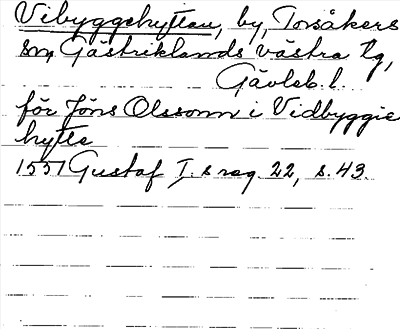 Vibyggehyttan, by, Torsåkers
sn, Gästriklands västra tg,
Gävleb. l.
för Jöns Olssonn i Vidbyggie
hytte
1551 Gustaf I.s reg. 22, s. 43.